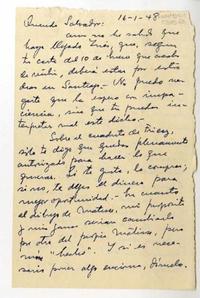 16-1-48
Querido Salvador:
Aun no he sabido que
haya llegado Inés, que, según
tu carta del 10 de enero que acabo
de recibir deberá estar por estos
días en Santiago. No puedo ne-
garte que la espero con impa-
ciencia, sin que tú puedas in-
terpretar mal este dicho.
Sobre el cuadrito de
sólo te digo que quedas plenamente
autorizado para hacer lo que
quieras. Si te gusta, lo compras;
si no, lo dejas
mejor oportunidad. En cuanto
al dibujo de Matisse, mi propósito
y mi gana serían cambiarlo
por otro del propio Matisse, pero
más "hecho". Y si es nece-
sario poner algo encima, dímelo.